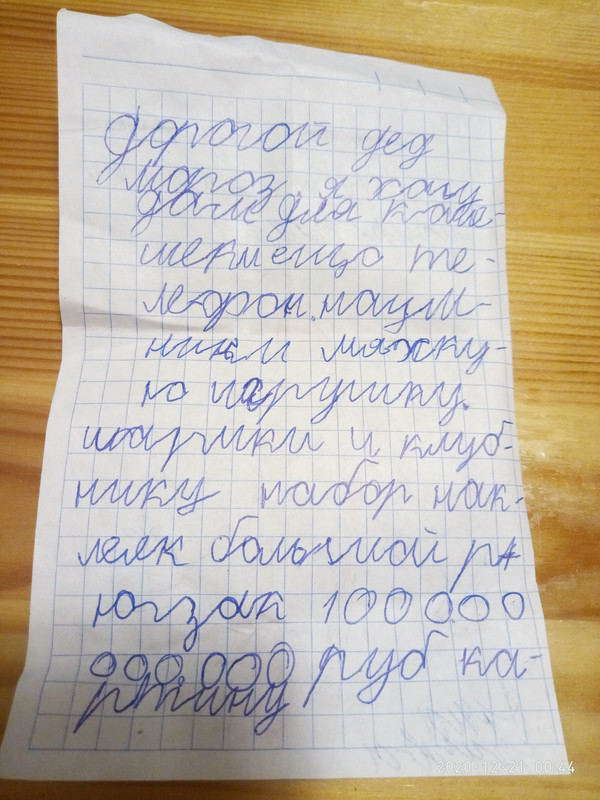 дорогой дед
мороз я хачу
для
шекменцо те-
лефон. нацш-
ники мяхку-
ю игрушку.
шарики и клуб-
нику набор нак-
леек большой рю
югзак 100000
000000 руб ка-
ртину
2020-12-21 00:44